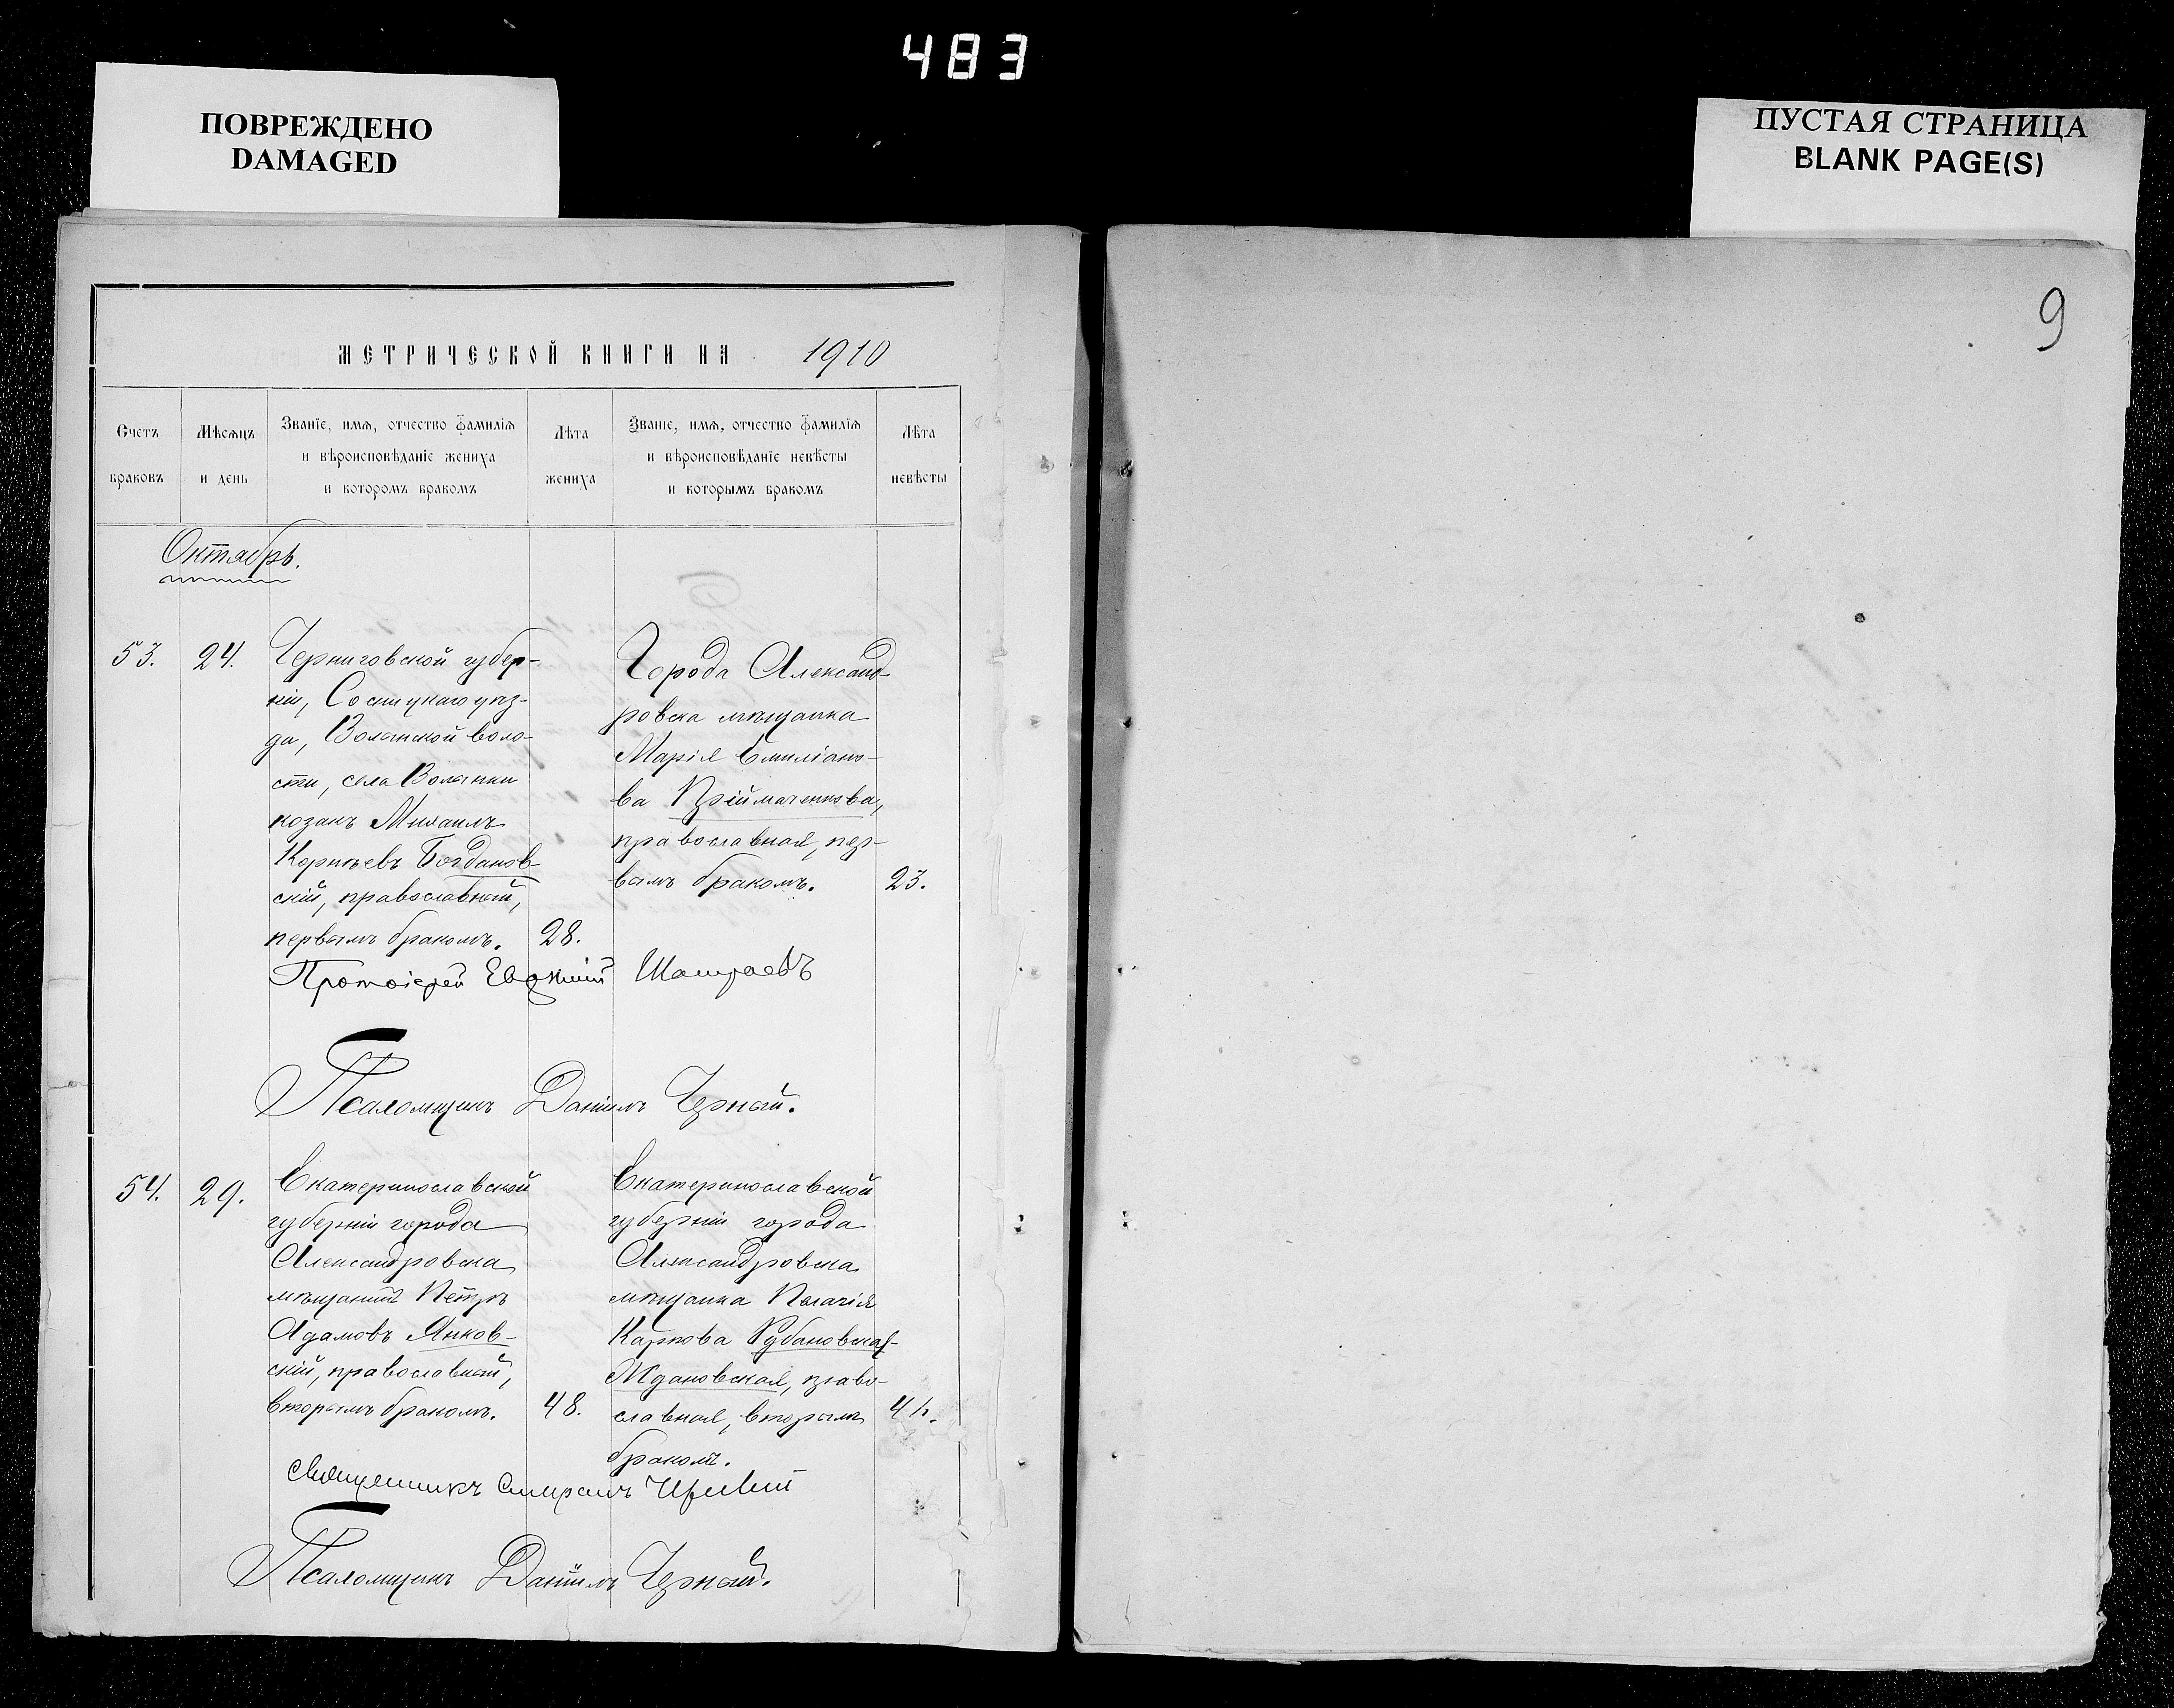 483
ПОВРЕЖДЕНО
DAMAGED
ПУСТАЯ СТРАНИЦА
BLANK PAGE(S)
9
МЕТРИЧЕСКОЙ КНИГИ НА 1910
Счетъ браковъ
Мѣсяцъ и день
Званіе, имя, отчество фамилія
и вѣроисповѣданіе жениха
и которомъ бракомъ
Лѣта жениха
Званіе, имя, отчество фамилія
и вѣроисповѣданіе невѣсты
и которымъ бракомъ
Лѣта невѣсты
Октябрь.
53. 24.
Черниговской губер-
ніи, Сосницкаго уѣз-
да, Волынской воло-
сти, села Волынки
козакъ Михаилъ
Корніевъ Богданов-
скій, православный,
первымъ бракомъ. 28.
Города Александ-
ровска мѣщанка
Марія Емиліано-
ва Пріймаченкова,
православная, пер-
вымъ бракомъ. 23.
Протоіерей
Псаломщикъ Даніилъ Черный.
54. 29.
Екатеринославской
губерніи города
Александровска
мѣщанинъ Петръ
Адамовъ Янков-
скій, православный,
вторымъ бракомъ. 48.
Екатеринославской
губерніи города
Александровска
мѣщанка Пелагія
Карпова Рубановская-
Ждановская, право-
славная, вторымъ
бракомъ.
Священникъ
Псаломщикъ Даніилъ Черный.